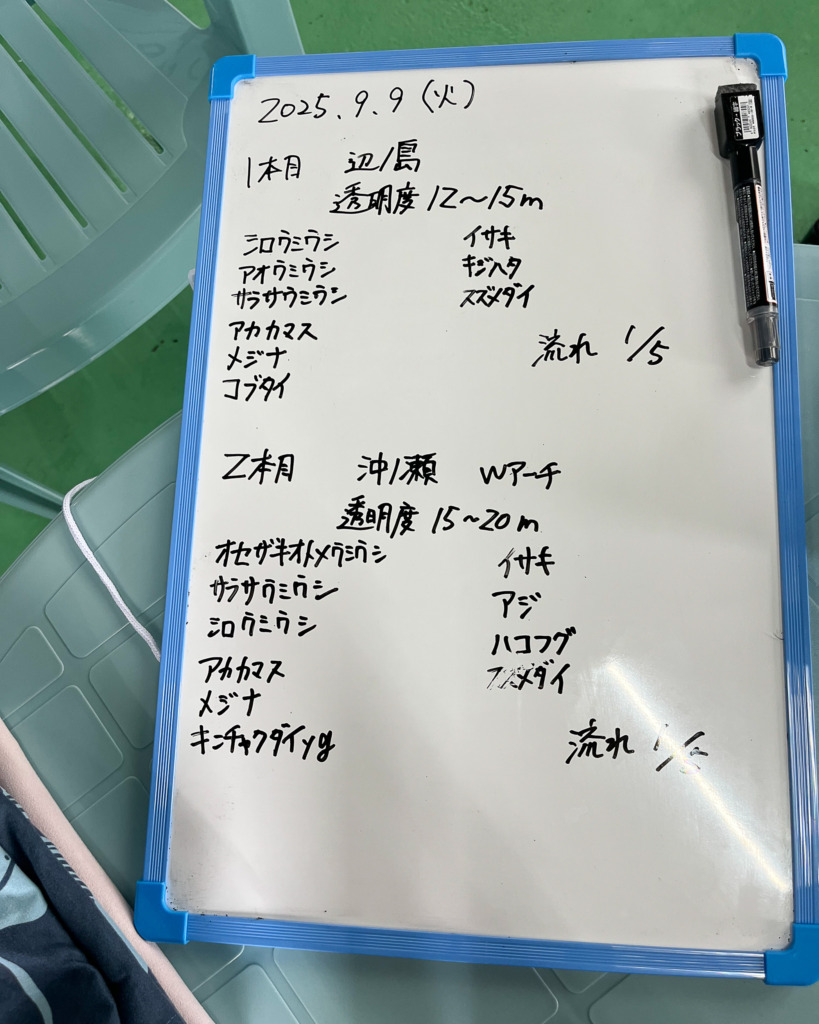 2025.9.9（火）
1本目 辺ノ島
透明度 12〜15m
シロウミウシ イサキ
アオウミウシ キジハタ
サラサウミウシ スズメダイ
アカカマス
メジナ 流れ 1/5
コブダイ
2本目 沖ノ瀬 Wアーチ
透明度 15〜20m
オセザキオトメウミウシ イサキ
サラサウミウシ アジ
シロウミウシ ハコフグ
アカカマス スズメダイ
メジナ
キンチャクダイyg 流れ
ブラック・細字